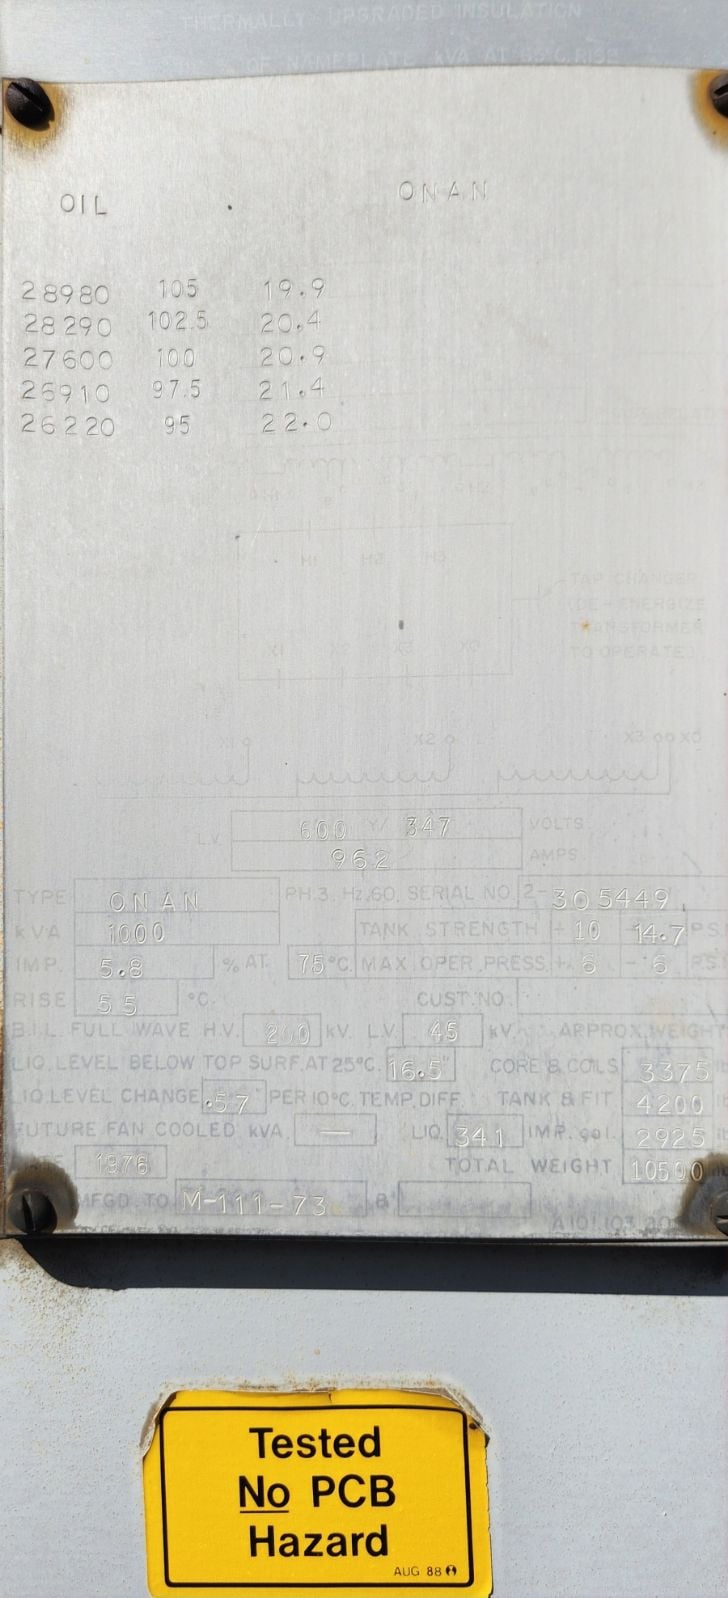 THERMALLY UPGRADED INSULATION
OF NAMEPLATE kVA AT 65°C.RISE
OIL ONAN
28980 105 19.9
28290 102.5 20.4
27600 100 20.9
26910 97.5 21.4
26220 95 22.0
H1 H2 H3
TAP CHANGER
(DE-ENERGIZE
TRANSFORMER
TO OPERATE)
X1 X2 X3 X0
X1 X2 X3 X0
L.V. 600 Y/ 347 VOLTS
962 AMPS
TYPE ONAN PH.3. Hz.60. SERIAL NO. 2-305449
kVA 1000 TANK STRENGTH + 10 - 14.7 P.S.I
IMP. 5.8 % AT 75°C. MAX.OPER.PRESS.+ 6 - 6 P.S.I
RISE 55 °C. CUST.NO.
B.I.L. FULL WAVE H.V. 200 kV. L.V. 45 kV. APPROX.WEIGHT
LIQ.LEVEL BELOW TOP SURF.AT 25°C. 16.5" CORE & COILS 3375 lb
LIQ.LEVEL CHANGE .57 PER 10°C. TEMP.DIFF. TANK & FIT. 4200 lb
FUTURE FAN COOLED kVA — LIQ. 341 IMP. gal. 2925 lb
1976 TOTAL WEIGHT 10500 lb
MFGD. TO M-111-73 8
Tested
No PCB
Hazard
AUG 88